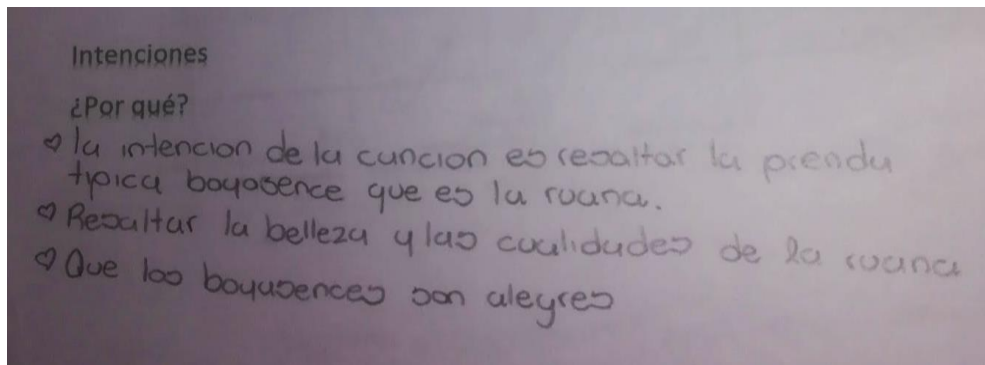 Intenciones
¿Por qué?
♡ la intencion de la cancion es resaltar la prenda
tipica boyasence que es la ruana.
♡ Resaltar la belleza y las cualidades de la ruana
♡ Que los boyasences son alegres